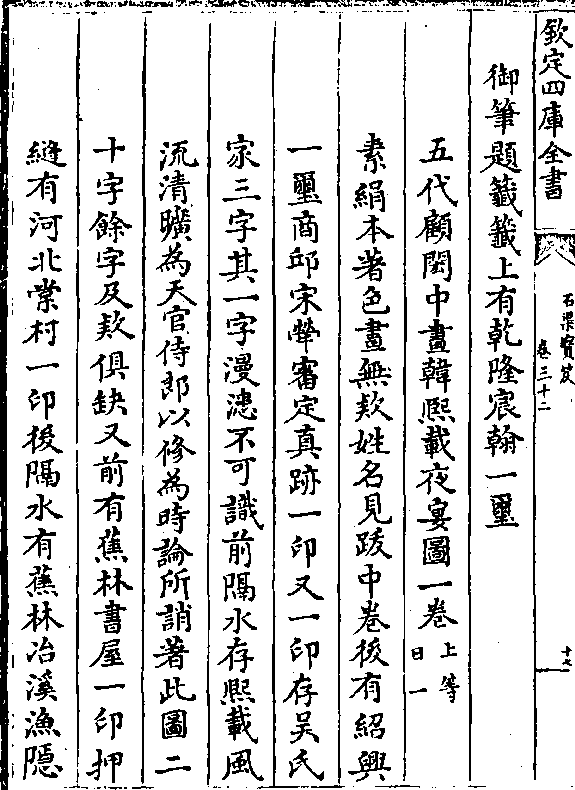 欽定四庫全書
石渠寶笈
卷三十二
十七
御筆題籤籤上有乾隆宸翰一璽
五代顧閎中畫韓熙載夜宴圖一卷上等
日一
素絹本著色畫無款姓名見跋中卷後有紹興
一璽商邱宋犖審定真跡一印又一印存吳氏
家三字其一字漫漶不可識前隔水存熙載風
流清曠為天官侍郎以修為時論所誚著此圖二
十字餘字及欵俱缺又前有蕉林書屋一印押
縫有河北棠村一印後隔水有蕉林冶溪漁隱